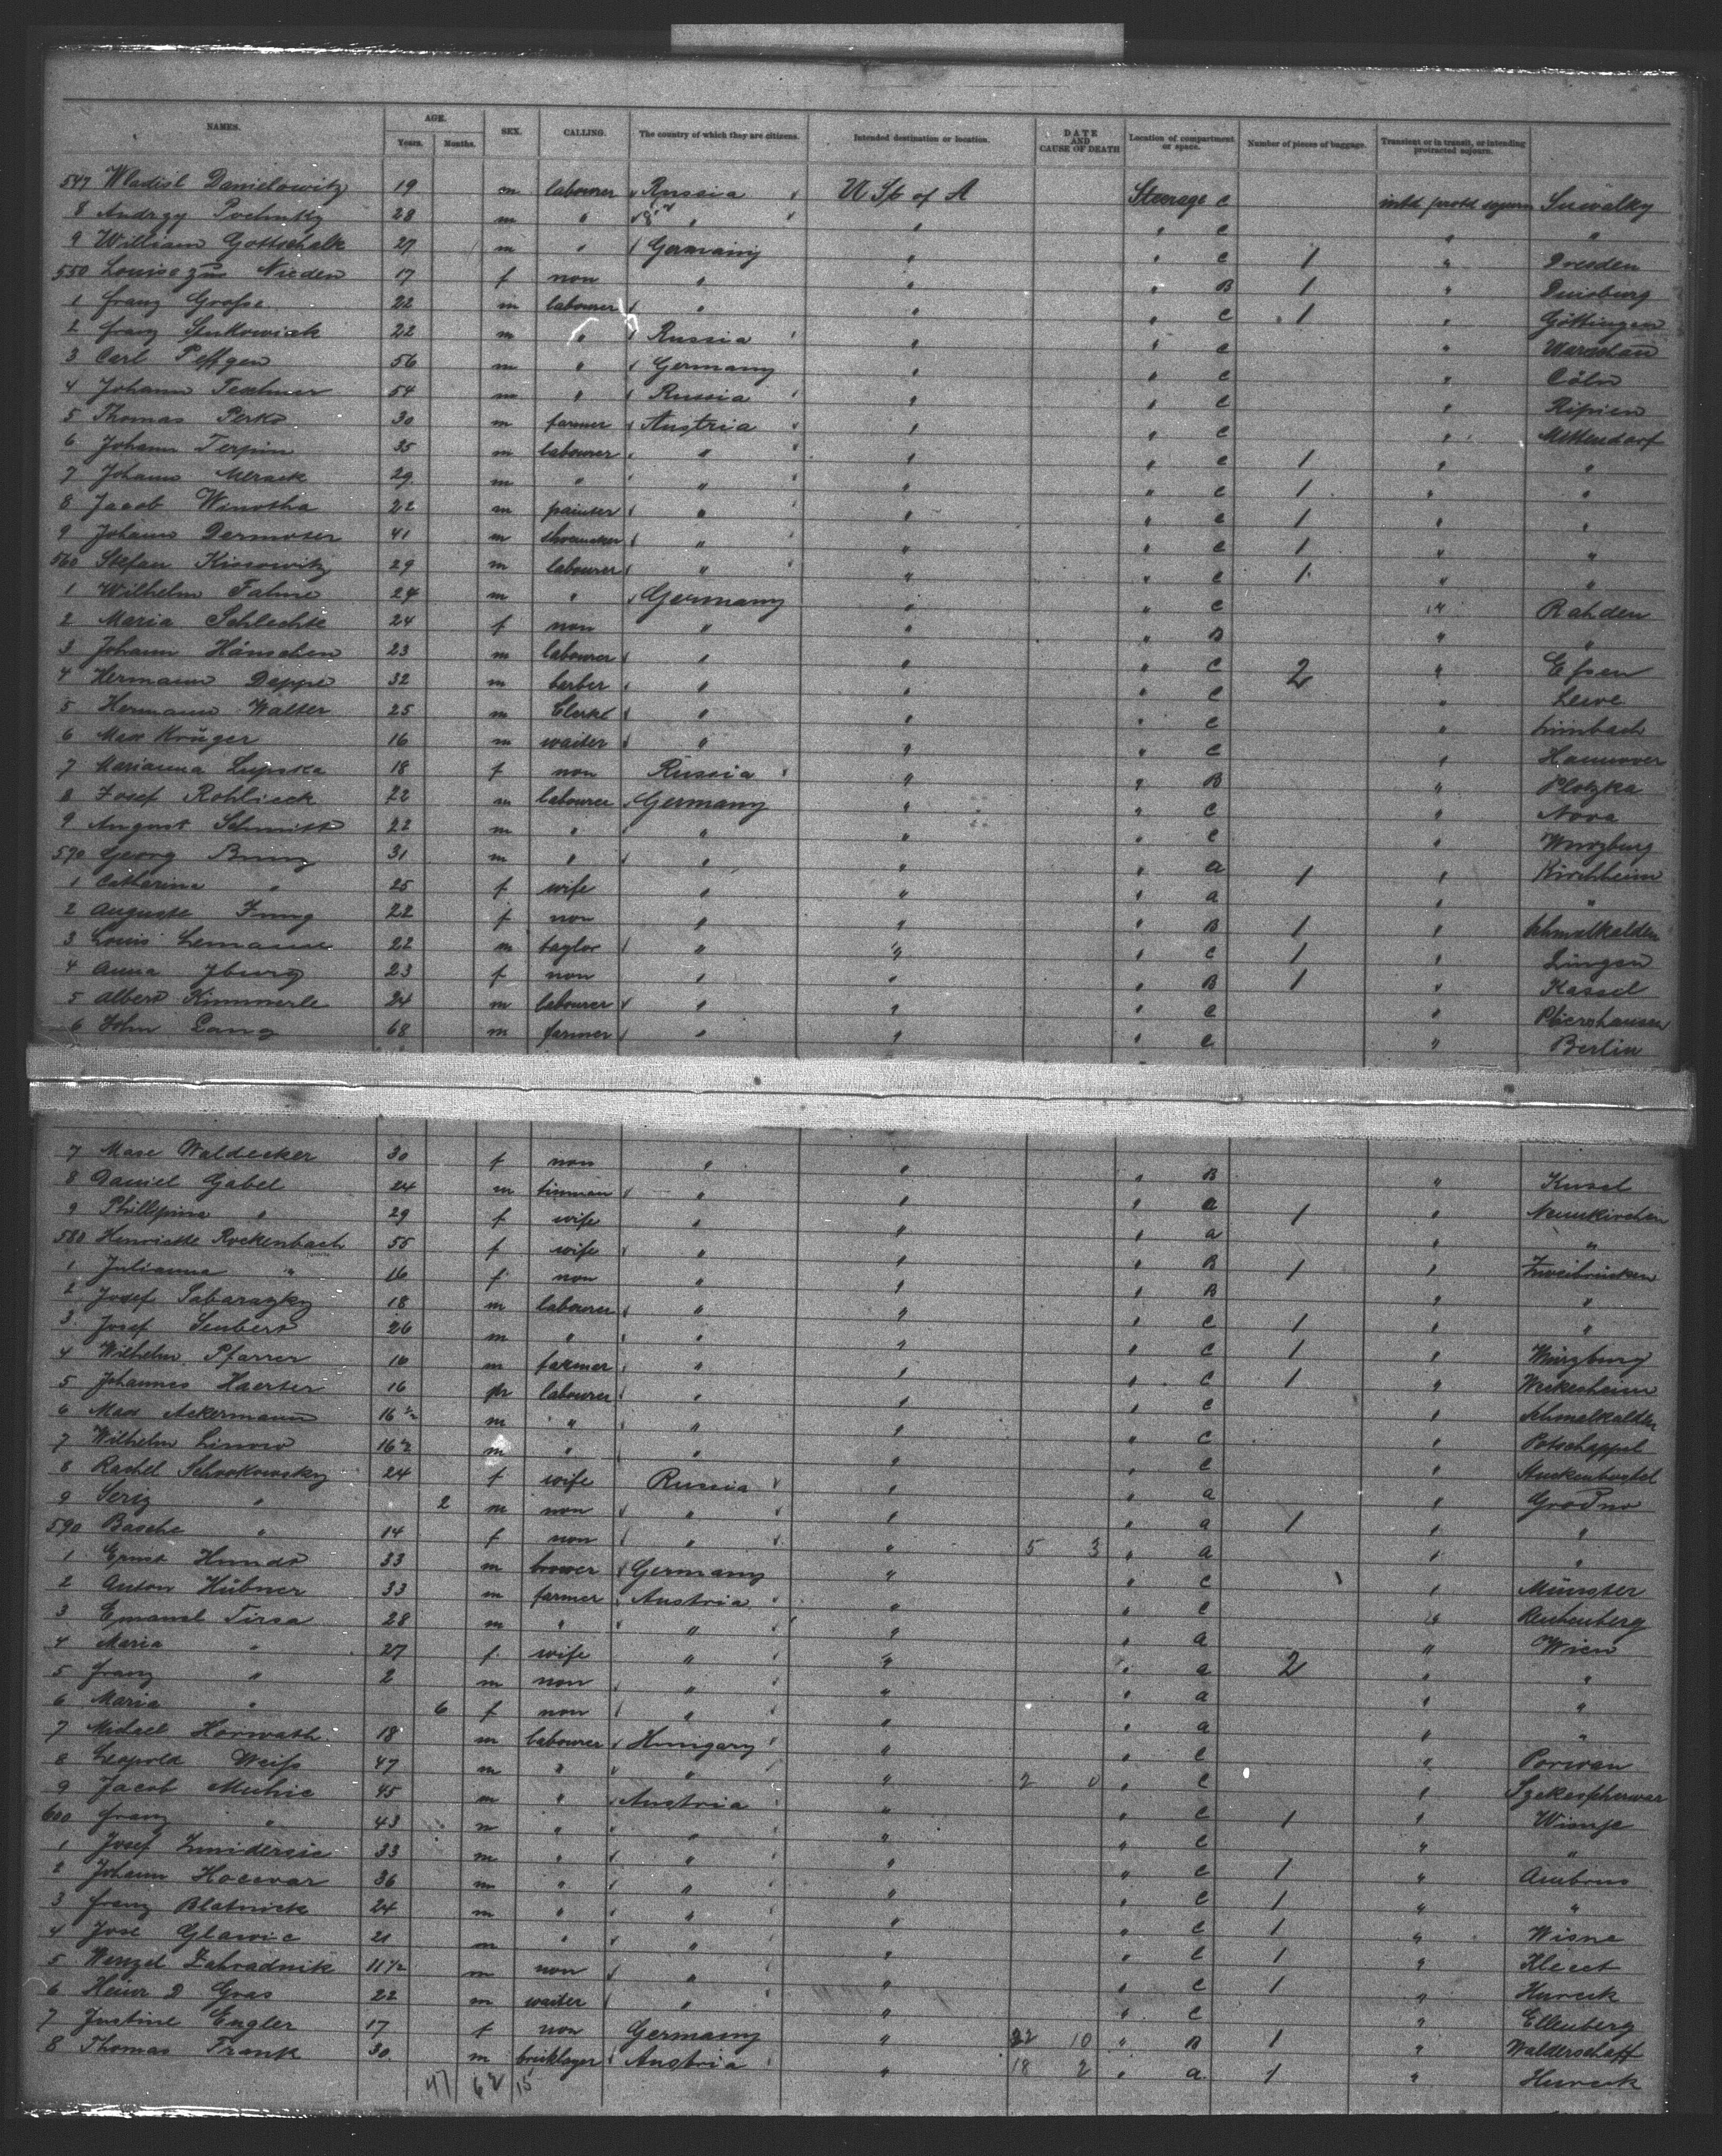 NAMES. AGE. Years. Months. SEX. CALLING. The country of which they are citizens. Intended destination or location. DATE AND CAUSE OF DEATH Location of compartment or space. Number of pieces of baggage. Transient or in transit, or intending protracted sojourn.
547 Wladisl Danielowitz 19 m labourer Russia U St of A Steerage C Suwalky
8 28 m " " " " C " "
9 William Gottschalk 27 m " Germany " " C 1 " Dresden
550 Louise zur Nieden 17 f non " " " B 1 " Duisburg
1 Franz Grofse 22 m labourer " " " C 1 " Göttingen
2 Franz 22 m " Russia " " C " Warschau
3 Carl Peffgen 56 m " Germany " " C " Cöln
4 Johann 54 m " Russia " " C " Ripien
5 Thomas Perko 30 m farmer Austria " " C " Mittendorf
6 Johann Terpin 35 m labourer " " " C 1 " "
7 Johann 29 m " " " " C 1 " "
8 Jacob 22 m painter " " " C 1 " "
9 Johann Dermoser 41 m shoemaker " " " C 1 " "
560 Stefan Kissowitz 29 m labourer " " " C 1 " "
1 Wilhelm 24 m " Germany " " C " Rahden
2 Maria Schlechte 24 f non " " " B " "
3 Johann Hänschen 23 m labourer " " " C 2 " Efsen
4 Hermann Deppe 32 m berber " " " C "
5 Hermann Walter 25 m Clerk " " " C " Limbach
6 Max Krüger 16 m waiter " " " C " Hannover
7 Marianna Lupska 18 f non Russia " " B " Plotzka
8 Josef Rohlieck 22 m labourer Germany " " C " Nova
9 August Schmitt 22 m " " " " C " Wurzburg
570 Georg 31 m " " " " a 1 " Kirchheim
1 Catharina " 25 f wife " " " a " "
2 Auguste Jung 22 f non " " " B 1 " Schmalkalden
3 Louis 22 m taylor " " " C 1 " Lingen
4 Anna Iburg 23 f non " " " B 1 " Kassel
5 Albert Kimmerle 24 m labourer " " " C "
6 John Lang 68 m farmer " " " C " Berlin
7 Waldecker 30 f non " " " B " Kusel
8 Daniel Gabel 24 m tinman " " " a 1 " Neunkirchen
9 Phillipina " 29 f wife " " " a " "
580 Henriette Rockenbach 55 f wife " " " B 1 " Zweibrücken
1 Julianna " 16 f non " " " B " "
2 Josef 18 m labourer " " " C 1 " "
3 Josef Seubert 26 m " " " " C 1 " Würzburg
4 Wilhelm Pfarrer 16 m farmer " " " C 1 "
5 Johannes Haerter 16 m labourer " " " C " Schmalkalden
6 Max Ackermann 16½ m " " " " C " Potschappel
7 Wilhelm 16½ m " " " " C "
8 Rachel 24 f wife Russia " " a " Grodno
9 " 2 m non " " " a 1 " "
590 Basche " 14 f non " " 5 3 " a " "
1 Ernst Hundt 33 m brower Germany " " C " Münster
2 Anton Hübner 33 m farmer Austria " " C "
3 Emanuel Tirsa 28 m " " " " a " Wien
4 Maria " 27 f wife " " " a 2 " "
5 Franz " 2 m non " " " a " "
6 Maria " 6 f non " " " a " "
7 Michael Horwath 18 m labourer Hungary " " C "
8 Leopold Weifs 47 m " " " 2 0 " C "
9 Jacob Muhic 45 m " Austria " " C 1 "
600 Franz " 43 m " " " " C " "
1 Josef 33 m " " " " C 1 " Ambrus
2 Johann Hocevar 36 m " " " " C 1 " "
3 Franz Blatnick 24 m " " " " C 1 " Wisne
4 Jose Glawic 21 m " " " " C 1 "
5 Wenzel Zahradnik 11½ m non " " " C 1 "
6 Heinr D Gras 22 m waiter " " " C " Ellenberg
7 Justine Engler 17 f non Germany " 22 10 " B 1 "
8 Thomas Frank 30 m bricklayer Austria " 18 2 " a 1 "
47 62 15